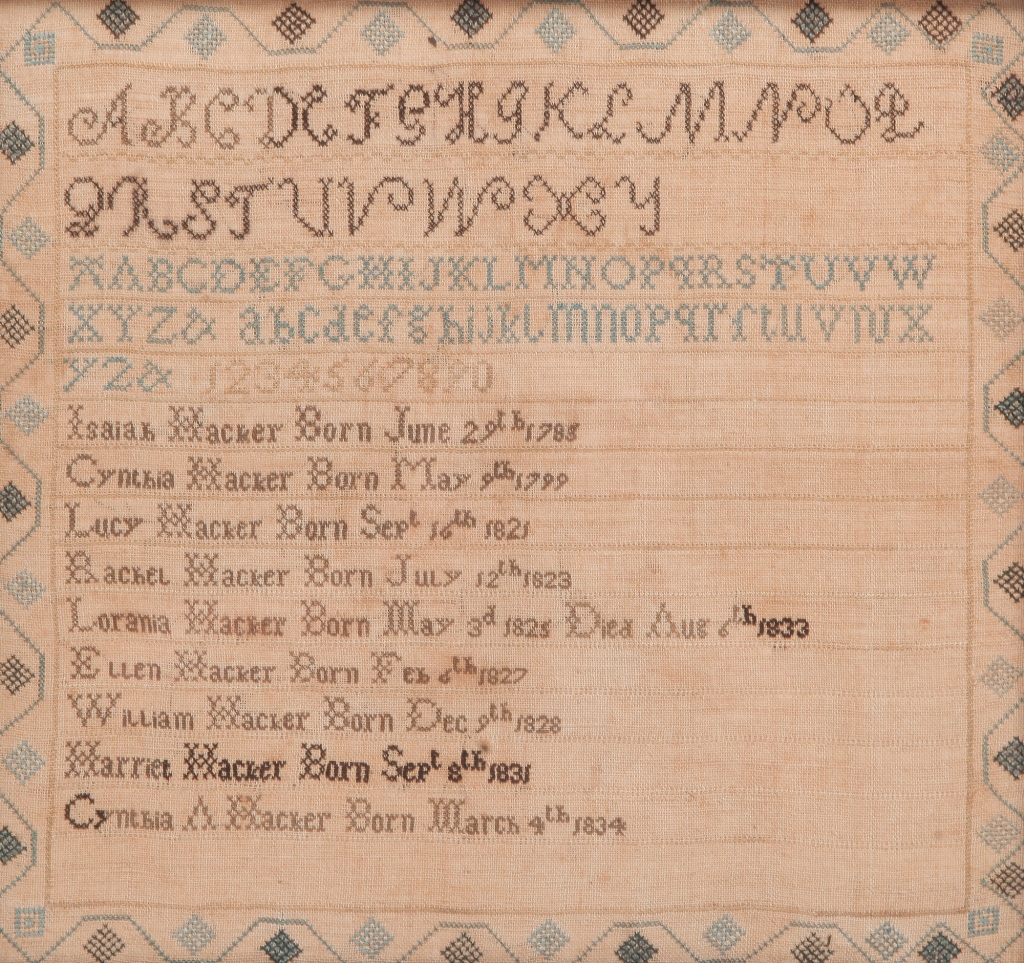 A B C D E F G H I K L M N O P
Q R S T U V W X Y
A A B C D E F G H I J K L M N O P Q R S T U V W
X Y Z & a b c d e f g h i j k l m n o p q r ſ t u v w x
y z & 1 2 3 4 5 6 7 8 9 0
Isaiah Hacker Born June 29th 1788
Cynthia Hacker Born May 9th 1799
Lucy Hacker Born Sept 16th 1821
Rachel Hacker Born July 12th 1823
Lorania Hacker Born May 3d 1825 Died Aug 6th 1833
Ellen Hacker Born Feb 6th 1827
William Hacker Born Dec 9th 1828
Harriet Hacker Born Sept 8th 1831
Cynthia A Hacker Born March 4th 1834